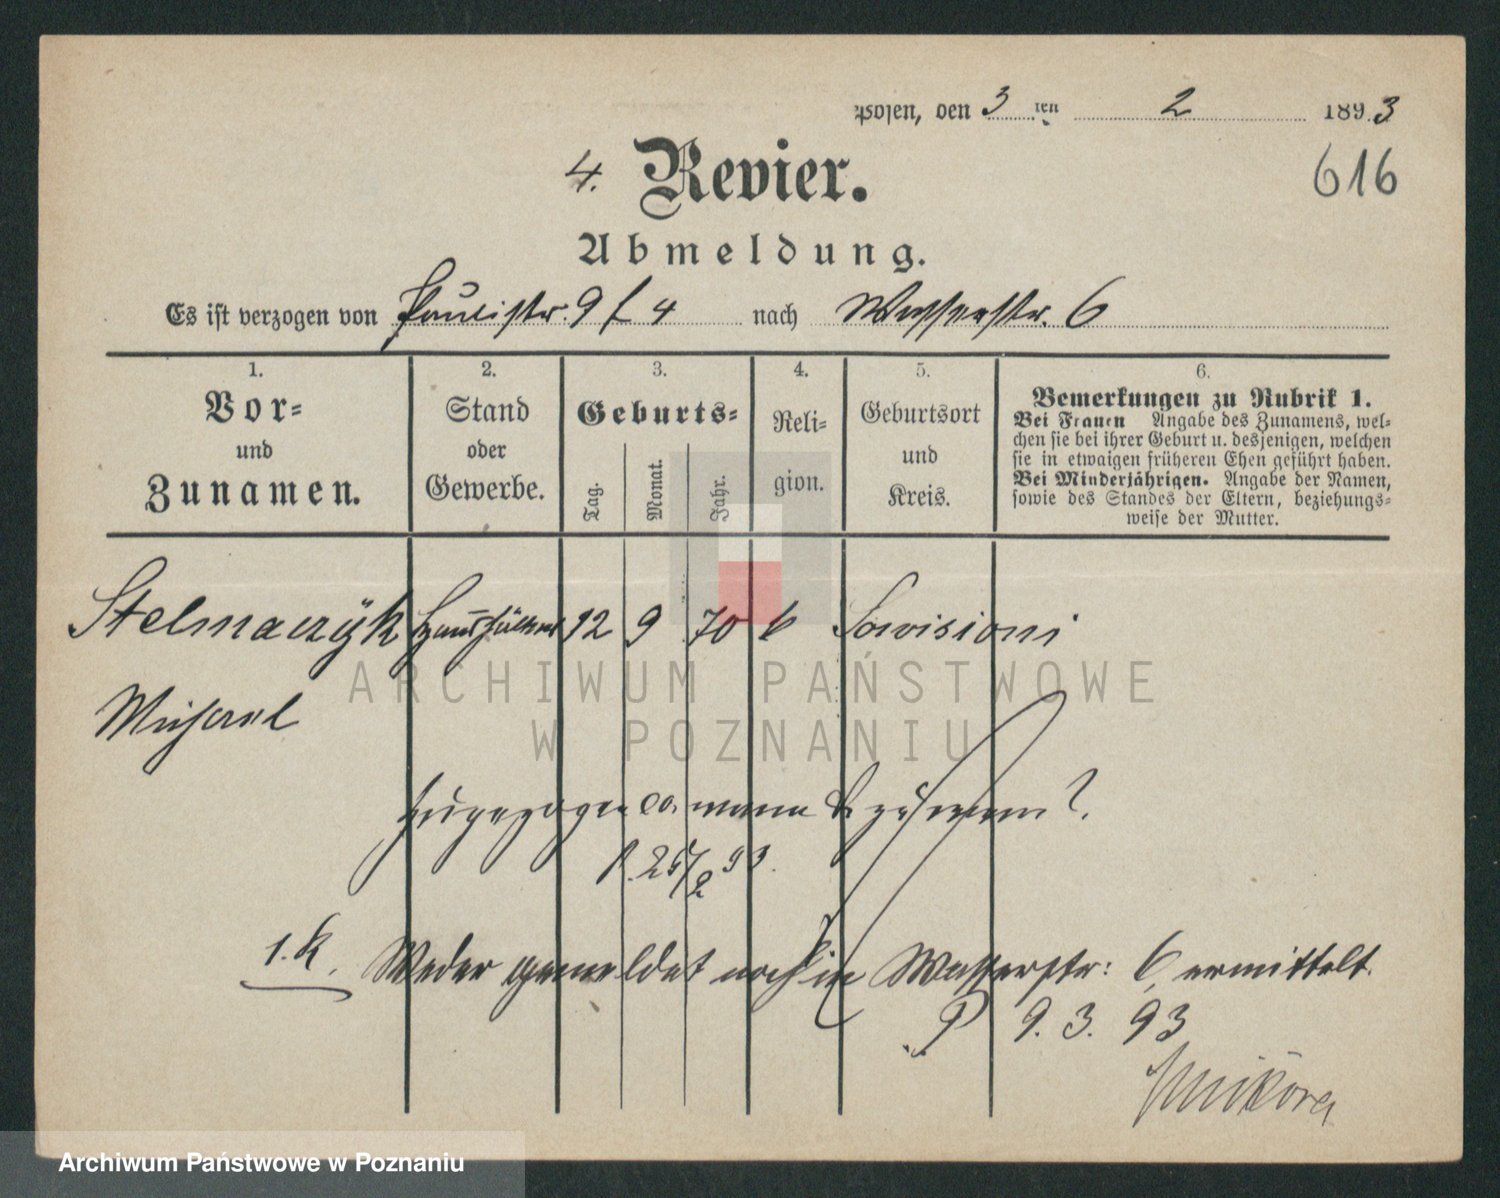 Posen, den 3 ten 2 1893
616
4. Revier.
Abmeldung.
Es ist verzogen von Paulistr. 9 4 nach Wasserstr. 6
1. Vor- und Zunamen.
2. Stand oder Gewerbe.
3. Geburts- Tag. Monat. Jahr.
4. Reli-gion.
5. Geburtsort und Kreis.
6. Bemerkungen zu Rubrik 1.
Bei Frauen Angabe des Zunamens, wel-
chen sie bei ihrer Geburt u. desjenigen, welchen
sie in etwaigen früheren Ehen geführt haben.
Bei Minderjährigen. Angabe der Namen,
sowie des Standes der Eltern, beziehungs-
weise der Mutter.
Stelmaczyk Haushälter 12 9 70 k
Michael
ARCHIWUM PAŃSTWOWE
W POZNANIU
zugezogen wann
25/2 93.
1. K. Weder gemeldet noch in Wasserstr: 6 ermittelt.
P 9. 3. 93
Archiwum Państwowe w Poznaniu